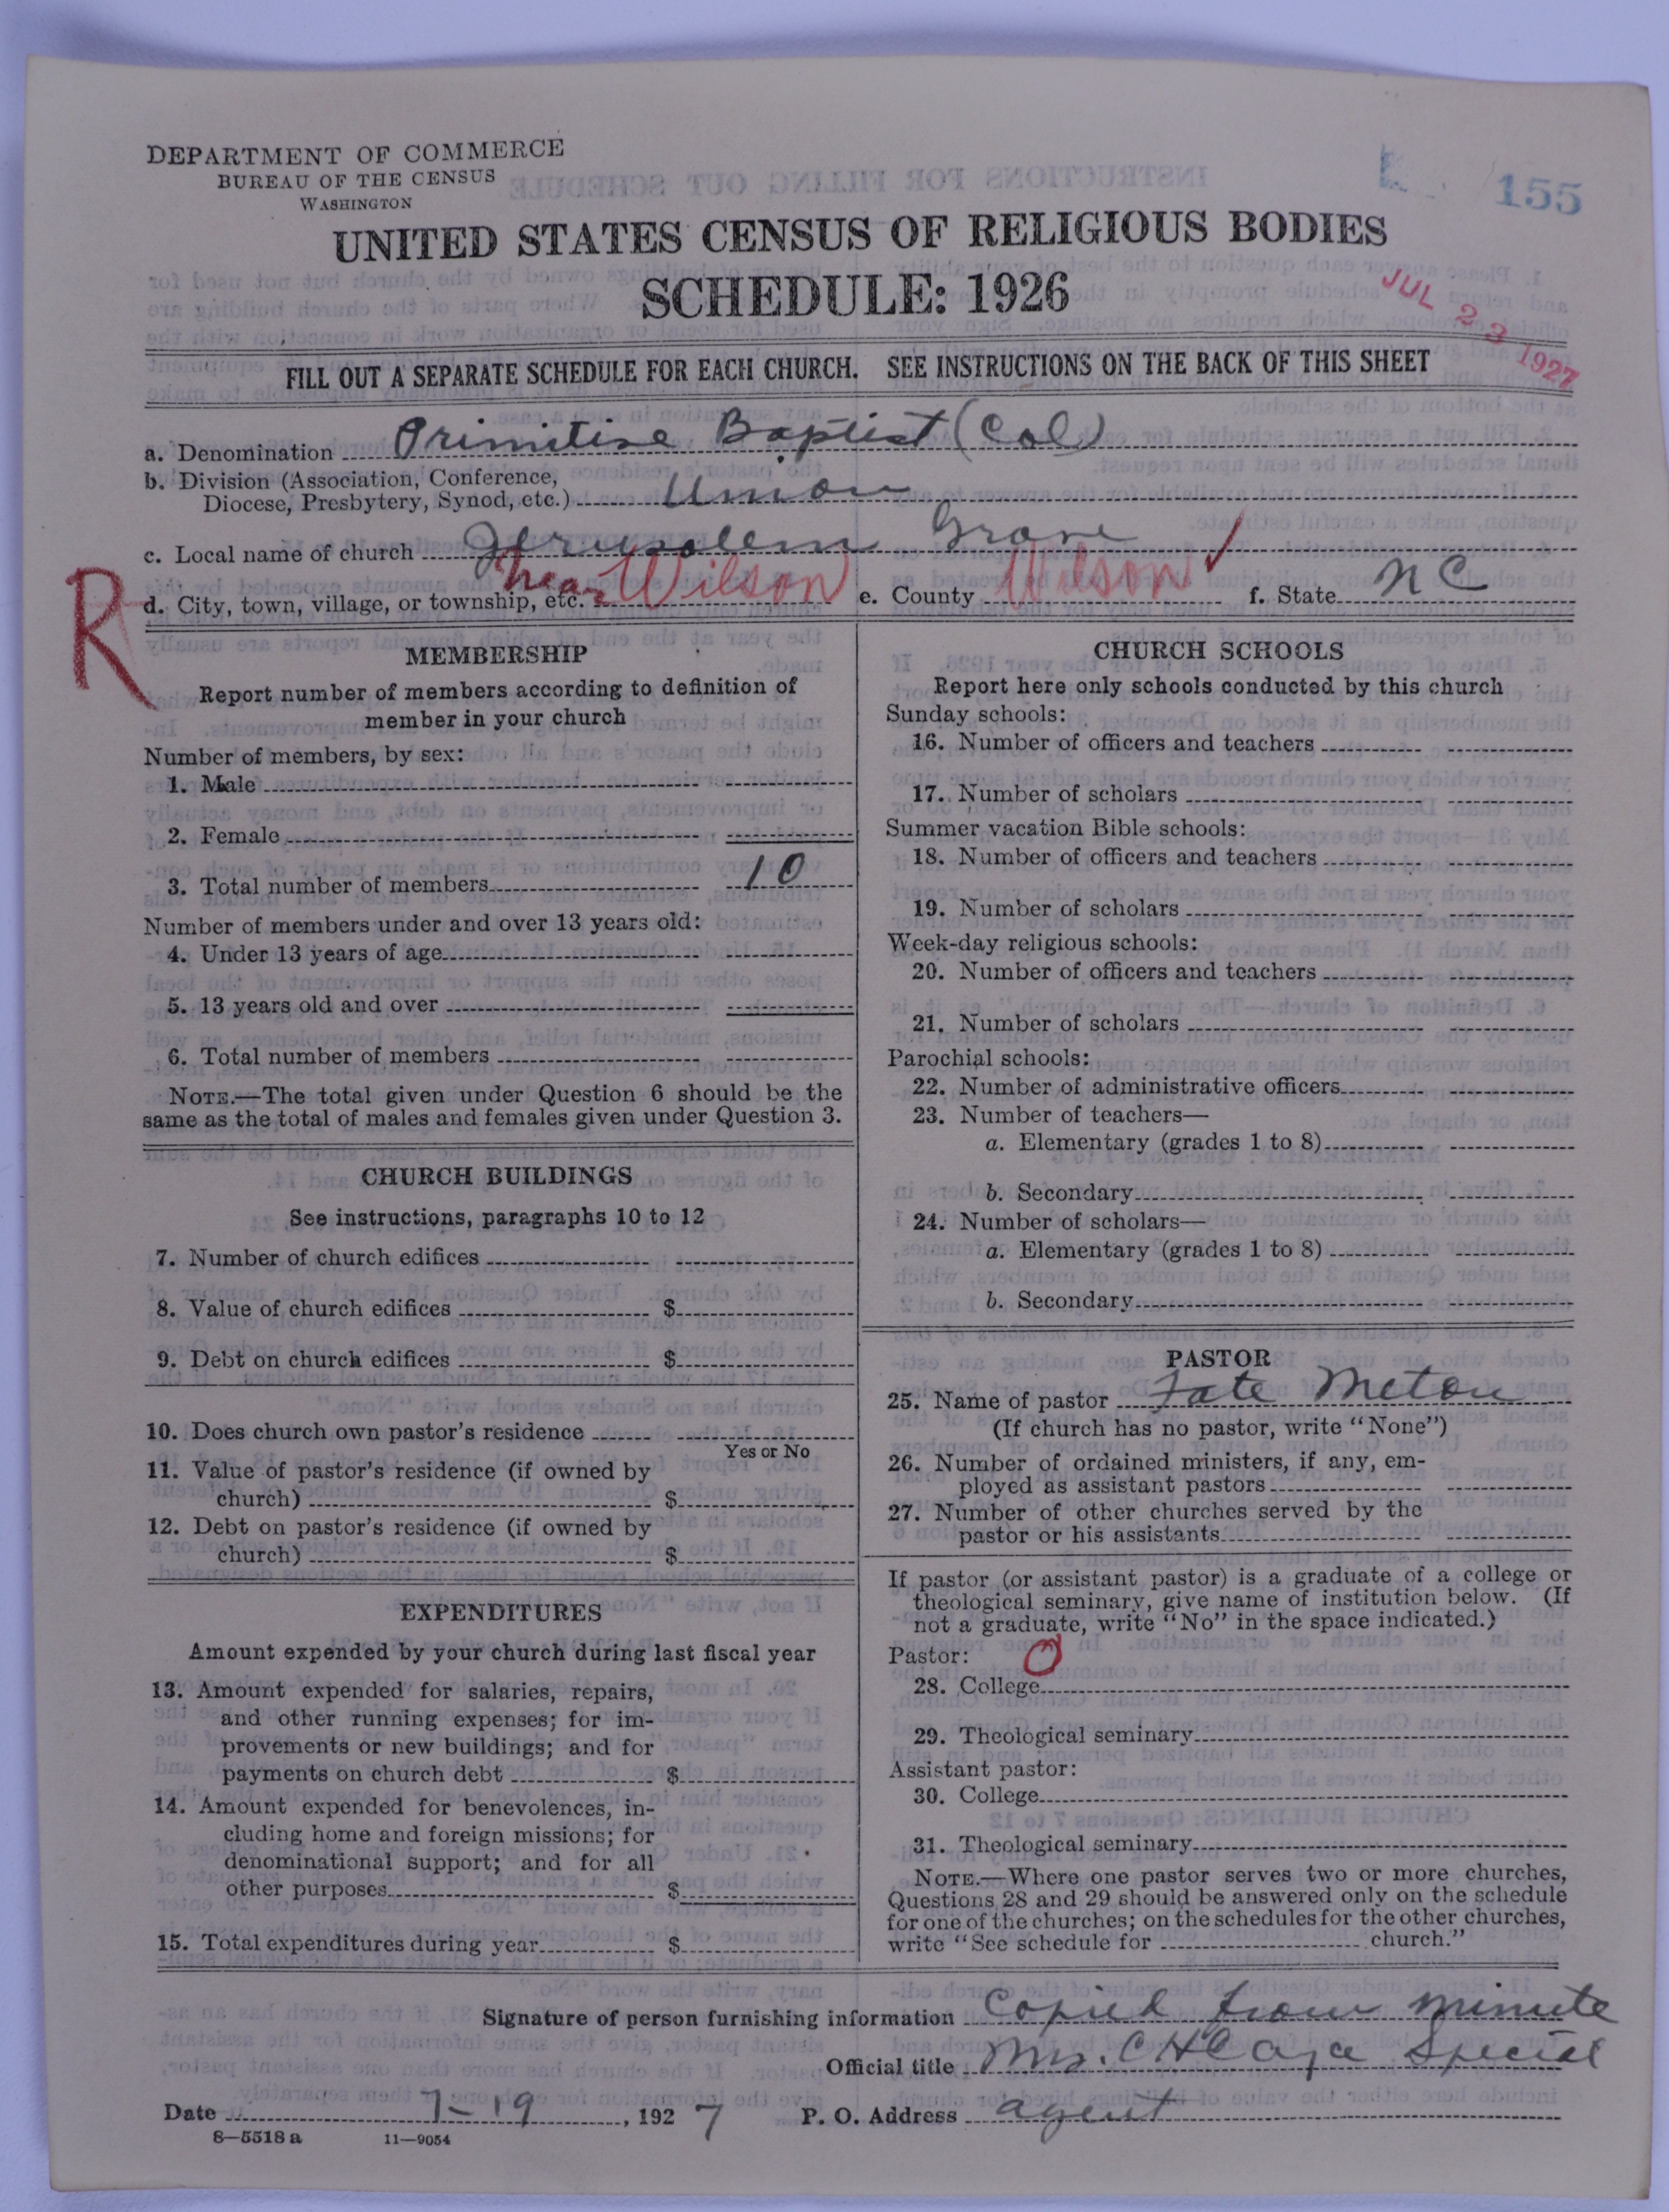 DEPARTMENT OF COMMERCE
BUREAU OF THE CENSUS
WASHINGTON
155
UNITED STATES CENSUS OF RELIGIOUS BODIES
SCHEDULE: 1926
JUL 23 1927
FILL OUT A SEPARATE SCHEDULE FOR EACH CHURCH. SEE INSTRUCTIONS ON THE BACK OF THIS SHEET
a. Denomination Primitive Baptist (Col)
b. Division (Association, Conference,
Diocese, Presbytery, Synod, etc.) Union
c. Local name of church Jerusalem Grove
R
d. City, town, village, or township, etc. near Wilson e. County Wilson f. State NC
MEMBERSHIP
Report number of members according to definition of
member in your church
Number of members, by sex:
1. Male
2. Female
3. Total number of members 10
Number of members under and over 13 years old:
4. Under 13 years of age
5. 13 years old and over
6. Total number of members
NOTE.—The total given under Question 6 should be the
same as the total of males and females given under Question 3.
CHURCH BUILDINGS
See instructions, paragraphs 10 to 12
7. Number of church edifices
8. Value of church edifices $
9. Debt on church edifices $
10. Does church own pastor's residence
Yes or No
11. Value of pastor's residence (if owned by
church) $
12. Debt on pastor's residence (if owned by
church) $
EXPENDITURES
Amount expended by your church during last fiscal year
13. Amount expended for salaries, repairs,
and other running expenses; for im-
provements or new buildings; and for
payments on church debt $
14. Amount expended for benevolences, in-
cluding home and foreign missions; for
denominational support; and for all
other purposes $
15. Total expenditures during year $
CHURCH SCHOOLS
Report here only schools conducted by this church
Sunday schools:
16. Number of officers and teachers
17. Number of scholars
Summer vacation Bible schools:
18. Number of officers and teachers
19. Number of scholars
Week-day religious schools:
20. Number of officers and teachers
21. Number of scholars
Parochial schools:
22. Number of administrative officers
23. Number of teachers—
a. Elementary (grades 1 to 8)
b. Secondary
24. Number of scholars—
a. Elementary (grades 1 to 8)
b. Secondary
PASTOR
25. Name of pastor Fate Meton
(If church has no pastor, write "None")
26. Number of ordained ministers, if any, em-
ployed as assistant pastors
27. Number of other churches served by the
pastor or his assistants
If pastor (or assistant pastor) is a graduate of a college or
theological seminary, give name of institution below. (If
not a graduate, write "No" in the space indicated.)
Pastor: O
28. College
29. Theological seminary
Assistant pastor:
30. College
31. Theological seminary
NOTE.—Where one pastor serves two or more churches,
Questions 28 and 29 should be answered only on the schedule
for one of the churches; on the schedules for the other churches,
write "See schedule for church."
Signature of person furnishing information Copied from minute
Official title Mrs. C H Special
Date 7-19, 1927 P. O. Address agent
8—5518 a 11—9054